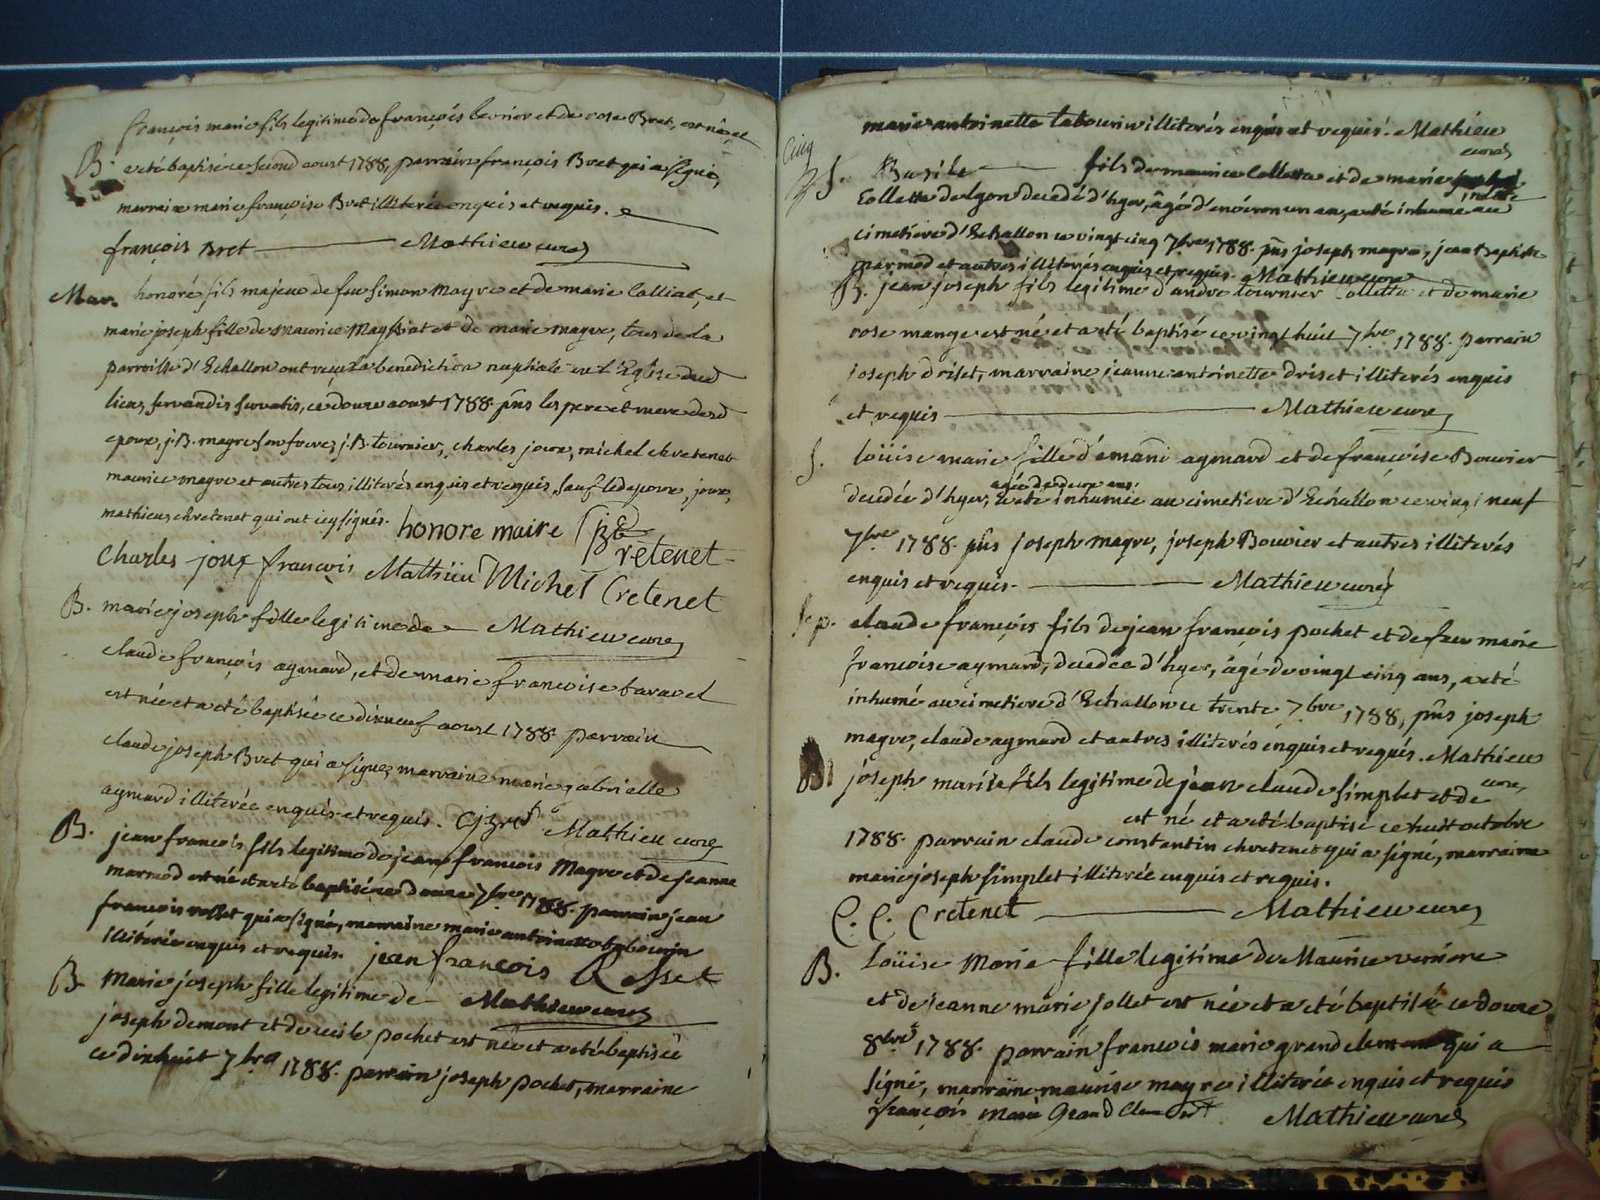 françois marie fils legitime de françois levrier et de rose Bret, est né et
B. a eté baptisé ce second aoust 1788, parrain françois Bret qui a signé,
marraine marie françoise Bret illiterée enquis et requis.
françois Bret Mathieu curé
Mar. honoré fils majeur de feu simon mayre et de marie Calliat, et
marie joseph fille de maurice Maissiat et de marie mayre, tous de la
parroisse d'Echallon ont reçu la benediction nuptiale en l'Eglise dud
lieu, servandis servatis, ce douze aoust 1788. pns les pere et mere desd
epoux, j.B. mayre son frere, j.B. tournier, charles joux, michel chretenet
maurice mayre et autres tous illiterés enquis et requis, sauf led epoux, joux,
mathieu, chretenet qui ont icy signés. honore maire j B Cretenet
Charles joux françois Mathieu Michel Cretenet
B. marie joseph fille legitime de Mathieu curé
claude françois aymard, et de marie françoise tavavel
est née et a eté baptisée ce dixneuf aoust 1788. parrain
claude joseph Bret qui a signé, marraine marie gabrielle
aymard illiterée enquis et requis. Cj Bret Mathieu curé
B. jean françois fils legitime de jean françois Mayre et de jeanne
marmod est né et a eté baptisé ce douze 7bre 1788. parrain jean
françois rosset qui a signé, marraine marie antoinette tabourin
illiterée enquis et requis. jean françois Rosset
B. Marie joseph fille legitime de Mathieu curé
joseph demont et de cecile pochet est née et a eté baptisée
ce dixhuit 7bre 1788. parrain joseph pochet, marraine
marie antoinette tabourin illiterés enquis et requis. Mathieu
curé
Cinq
S. Basile fils de maurice Colletta et de marie
Colletta delgon decedé d'hyer, âgé d'environ un an, a eté inhumé au
cimetiere d'Echallon ce vingt cinq 7bre 1788. pns joseph mayre, jean Baptiste
marmod et autres illiterés enquis et requis. Mathieu curé
B. jean joseph fils legitime d'andre tournier Colletta et de marie
rose mange est né et a eté baptisé ce vingt huit 7bre 1788. parrain
joseph driset, marraine jeanne antoinette driset illiterés enquis
et requis Mathieu curé
S. loüise marie fille d'emard aymard et de françoise Bouvier
âgée de deux ans
decedée d'hyer, a eté inhumée au cimetiere d'Echallon ce vingt neuf
7bre 1788. pns joseph mayre, joseph Bouvier et autres illiterés
enquis et requis. Mathieu curé
Sep. claude françois fils de jean françois pochet et de feu marie
françoise aymard, decedée d'hyer, âgé de vingt cinq ans, a eté
inhumé au cimetiere d'Echallon ce trente 7bre 1788, pns joseph
mayre, claude aymard et autres illiterés enquis et requis. Mathieu
curé
joseph marie fils legitime de jean claude simplet et de
est né et a eté baptisé ce huit octobre
1788. parrain claude constantin chretenet qui a signé, marraine
marie joseph simplet illiterée enquis et requis.
C. C. Cretenet Mathieu curé
B. Loüise Marie fille legitime de Maurice verriere
et de jeanne marie jollet est née et a eté baptisée ce douze
8bre 1788. parrain françois marie grandclement qui a
signé, marraine maurise mayre illiterée enquis et requis
françois marie Grand Clement Mathieu curé